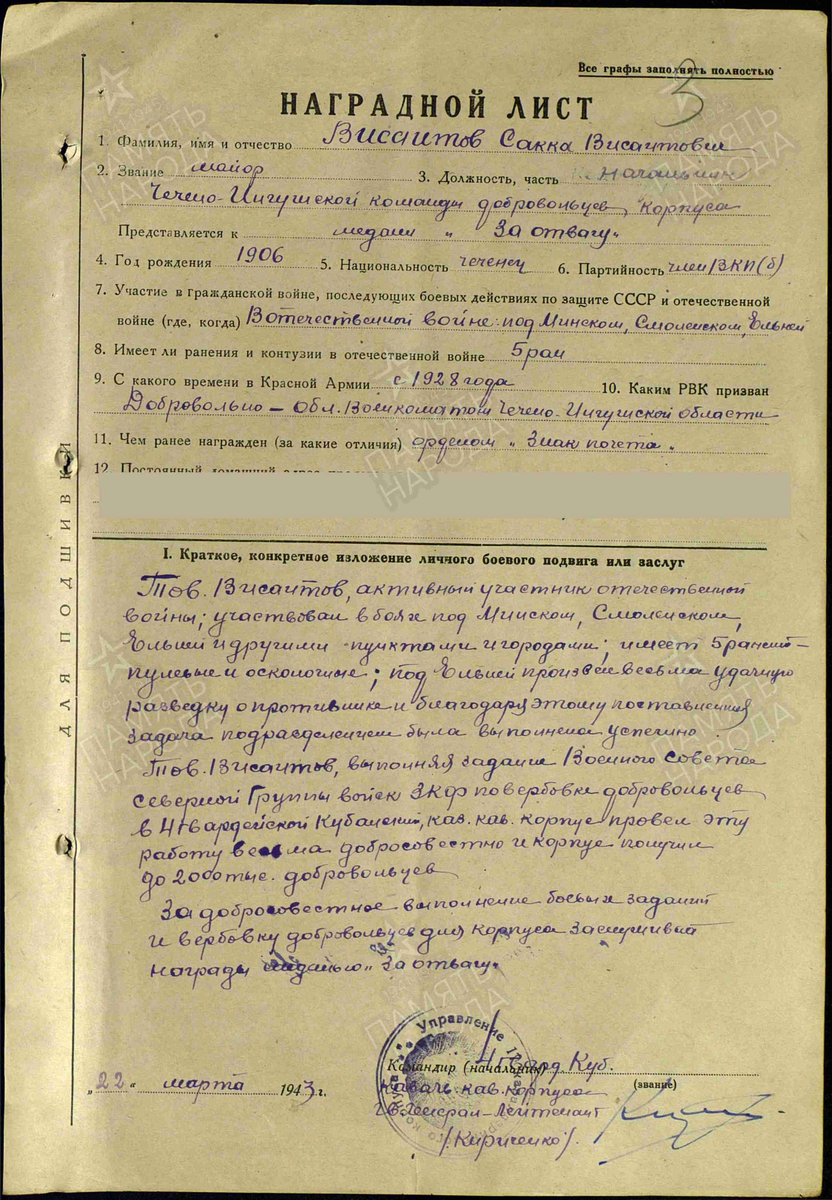 Все графы заполнять полностью
3
НАГРАДНОЙ ЛИСТ
1. Фамилия, имя и отчество Висаитов Сакка Висаитович
2. Звание майор 3. Должность, часть Начальник
Чечено-Ингушской команды добровольцев корпуса
Представляется к медали „За отвагу"
4. Год рождения 1906 5. Национальность чеченец 6. Партийность член ВКП(б)
7. Участие в гражданской войне, последующих боевых действиях по защите СССР и отечественной
войне (где, когда) В отечественной войне: под Минском, Смоленском, Ельней
8. Имеет ли ранения и контузии в отечественной войне 5 ран
9. С какого времени в Красной Армии с 1928 года 10. Каким РВК призван
Добровольно – Обл. Военкоматом Чечено-Ингушской области
11. Чем ранее награжден (за какие отличия) орденом „Знак почета".
12. Постоянный домашний адрес
ДЛЯ ПОДШИВКИ
I. Краткое, конкретное изложение личного боевого подвига или заслуг
Тов. Висаитов, активный участник отечественной
войны; участвовал в боях под Минском, Смоленском,
Ельней и другими пунктами и городами; имеет 5 ранений –
пулевые и осколочные; под Ельней произвел весьма удачную
разведку о противнике и благодаря этому поставленная
задача подразделением была выполнена успешно
Тов. Висаитов, выполняя задание Военного Совета
северной Группы войск ЗКФ по вербовке добровольцев
в 4 гвардейской Кубанский, каз. кав. корпус провел эту
работу весьма добросовестно и корпус получил
до 2000 тыс. добровольцев
За добросовестное выполнение боевых заданий
и вербовку добровольцев для корпуса заслуживает
награды медалью „За отвагу"
Управление
Командир (начальник) 4 Гвард. Куб.
„22" марта 1943 г.
(звание)
Казачь. кав. корпуса
Гв. Генерал-Лейтенант
/Кириченко/.
ПАМЯТЬ НАРОДА